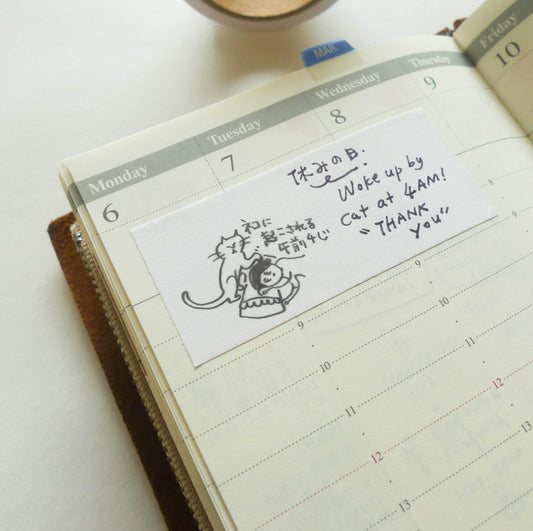 MAR.
Monday
6
Tuesday
7
Wednesday
8
Thursday
9
Friday
10
休みの日.
Woke up by
cat at 4AM!
"THANK
YOU"
ネコに
起こされる
午前4じ
8
9
9
10
11
11
12
12
13
13